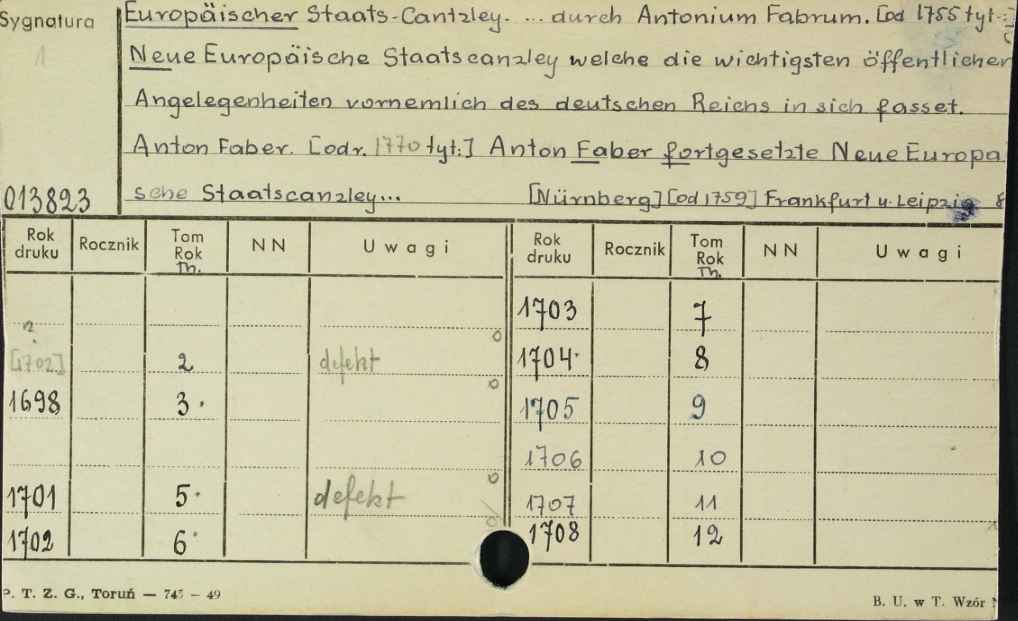 Sygnatura
1
013823
Europäischer Staats-Cantzley. ... durch Antonium Fabrum. [od 1755 tyt.:]
Neue Europäische Staatscanzley welche die wichtigsten öffentlichen
Angelegenheiten vornemlich des deutschen Reichs in sich fasset.
Anton Faber. [odr. 1770 tyt:] Anton Faber fortgesetzte Neue Europä
sche Staatscanzley... [Nürnberg] [od 1759] Frankfurt u. Leipzig 8
Rok druku Rocznik Tom Rok Th. NN Uwagi Rok druku Rocznik Tom Rok Th. NN Uwagi
1703 7
?
[1702] 2 defekt 1704. 8
1698 3. 1705 9
1706 10
1701 5. defekt 1707 11
1702 6. 1708 12
P. T. Z. G., Toruń — 745 – 49
B. U. w T. Wzór